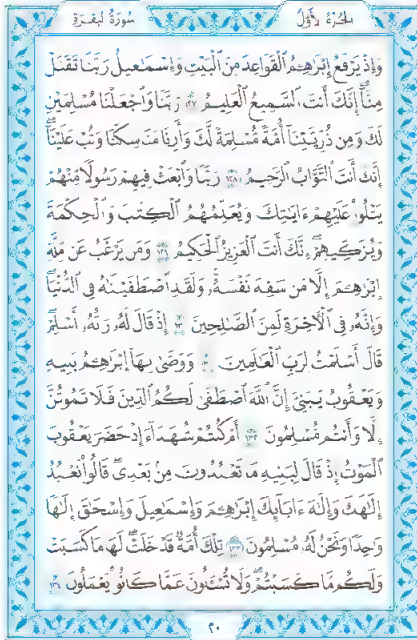 الجزء الأول
سورة البقرة
وَإِذْ يَرْفَعُ إِبْرَٰهِـۧمُ ٱلْقَوَاعِدَ مِنَ ٱلْبَيْتِ وَإِسْمَٰعِيلُ رَبَّنَا تَقَبَّلْ
مِنَّآ إِنَّكَ أَنتَ ٱلسَّمِيعُ ٱلْعَلِيمُ ١٢٧ رَبَّنَا وَٱجْعَلْنَا مُسْلِمَيْنِ
لَكَ وَمِن ذُرِّيَّتِنَآ أُمَّةً مُّسْلِمَةً لَّكَ وَأَرِنَا مَنَاسِكَنَا وَتُبْ عَلَيْنَآ
إِنَّكَ أَنتَ ٱلتَّوَّابُ ٱلرَّحِيمُ ١٢٨ رَبَّنَا وَٱبْعَثْ فِيهِمْ رَسُولًا مِّنْهُمْ
يَتْلُوا۟ عَلَيْهِمْ ءَايَٰتِكَ وَيُعَلِّمُهُمُ ٱلْكِتَٰبَ وَٱلْحِكْمَةَ
وَيُزَكِّيهِمْ إِنَّكَ أَنتَ ٱلْعَزِيزُ ٱلْحَكِيمُ ١٢٩ وَمَن يَرْغَبُ عَن مِّلَّةِ
إِبْرَٰهِـۧمَ إِلَّا مَن سَفِهَ نَفْسَهُۥ وَلَقَدِ ٱصْطَفَيْنَٰهُ فِى ٱلدُّنْيَا
وَإِنَّهُۥ فِى ٱلْءَاخِرَةِ لَمِنَ ٱلصَّٰلِحِينَ ١٣٠ إِذْ قَالَ لَهُۥ رَبُّهُۥٓ أَسْلِمْ
قَالَ أَسْلَمْتُ لِرَبِّ ٱلْعَٰلَمِينَ ١٣١ وَوَصَّىٰ بِهَآ إِبْرَٰهِـۧمُ بَنِيهِ
وَيَعْقُوبُ يَٰبَنِىَّ إِنَّ ٱللَّهَ ٱصْطَفَىٰ لَكُمُ ٱلدِّينَ فَلَا تَمُوتُنَّ
إِلَّا وَأَنتُم مُّسْلِمُونَ ١٣٢ أَمْ كُنتُمْ شُهَدَآءَ إِذْ حَضَرَ يَعْقُوبَ
ٱلْمَوْتُ إِذْ قَالَ لِبَنِيهِ مَا تَعْبُدُونَ مِنۢ بَعْدِى قَالُوا۟ نَعْبُدُ
إِلَٰهَكَ وَإِلَٰهَ ءَابَآئِكَ إِبْرَٰهِـۧمَ وَإِسْمَٰعِيلَ وَإِسْحَٰقَ إِلَٰهًا
وَٰحِدًا وَنَحْنُ لَهُۥ مُسْلِمُونَ ١٣٣ تِلْكَ أُمَّةٌ قَدْ خَلَتْ لَهَا مَا كَسَبَتْ
وَلَكُم مَّا كَسَبْتُمْ وَلَا تُسْـَٔلُونَ عَمَّا كَانُوا۟ يَعْمَلُونَ ١٣٤
٢٠